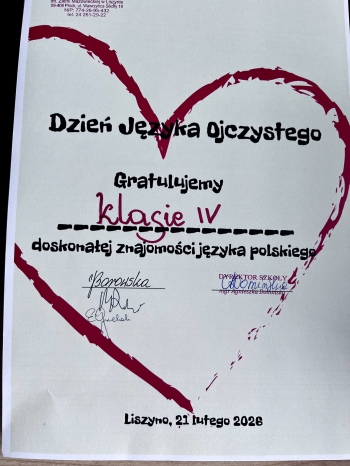 im. Ziemi Mazowieckiej w Liszynie
NIP: 774-26-95-432
tel. 24 261-29-22
Dzień Języka Ojczystego
Gratulujemy
klasie IV
doskonałej znajomości języka polskiego
Borowska
DYREKTOR SZKOŁY
mgr Agnieszka
Liszyno, 21 lutego 2026